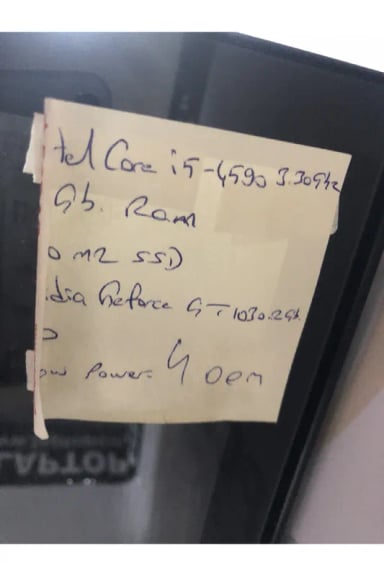 tel Core i5-4590 3.30Ghz
Gb. Ram
0 m2 SSD
dia Geforce GT 1030.2Gb.
ow Power. 4 oem
LAPTOP